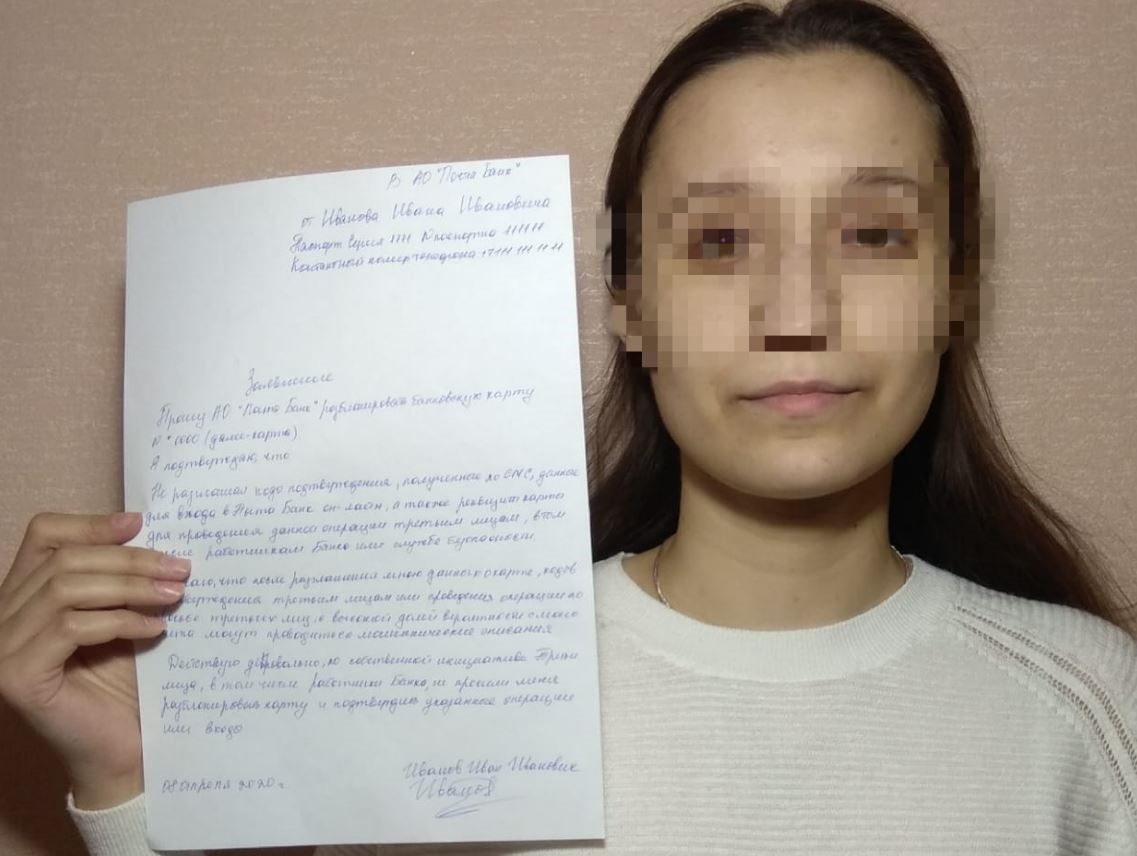 В АО "Почта Банк"
от Иванова Ивана Ивановича
Паспорт серия 1111 № паспорта 111111
Контактный номер телефона +7 111 111 11 11
Заявление
Прошу АО "Почта Банк" разблокировать банковскую карту
№ *0000 (далее-карта)
Я подтверждаю, что
Не разглашал кода подтверждения, полученного по СМС, данные
для входа в Почта Банк он-лайн, а также реквизит карты
для проведения данной операции третьим лицам, в том
числе работникам Банка или службе безопасности.
что после разглашения мною данных о карте, кодов
третьим лицам или проведения операции по
третьих лиц, с высокой долей вероятности с моего
могут проводиться мошеннические описания
Действую добровольно, по собственной инициативе. Третьи
лица, в том числе работники Банка, не просили меня
разблокировать карту и подтвердить указанные операции
или входы
08 апреля 2020 г.
Иванов Иван Иванович
Иванов